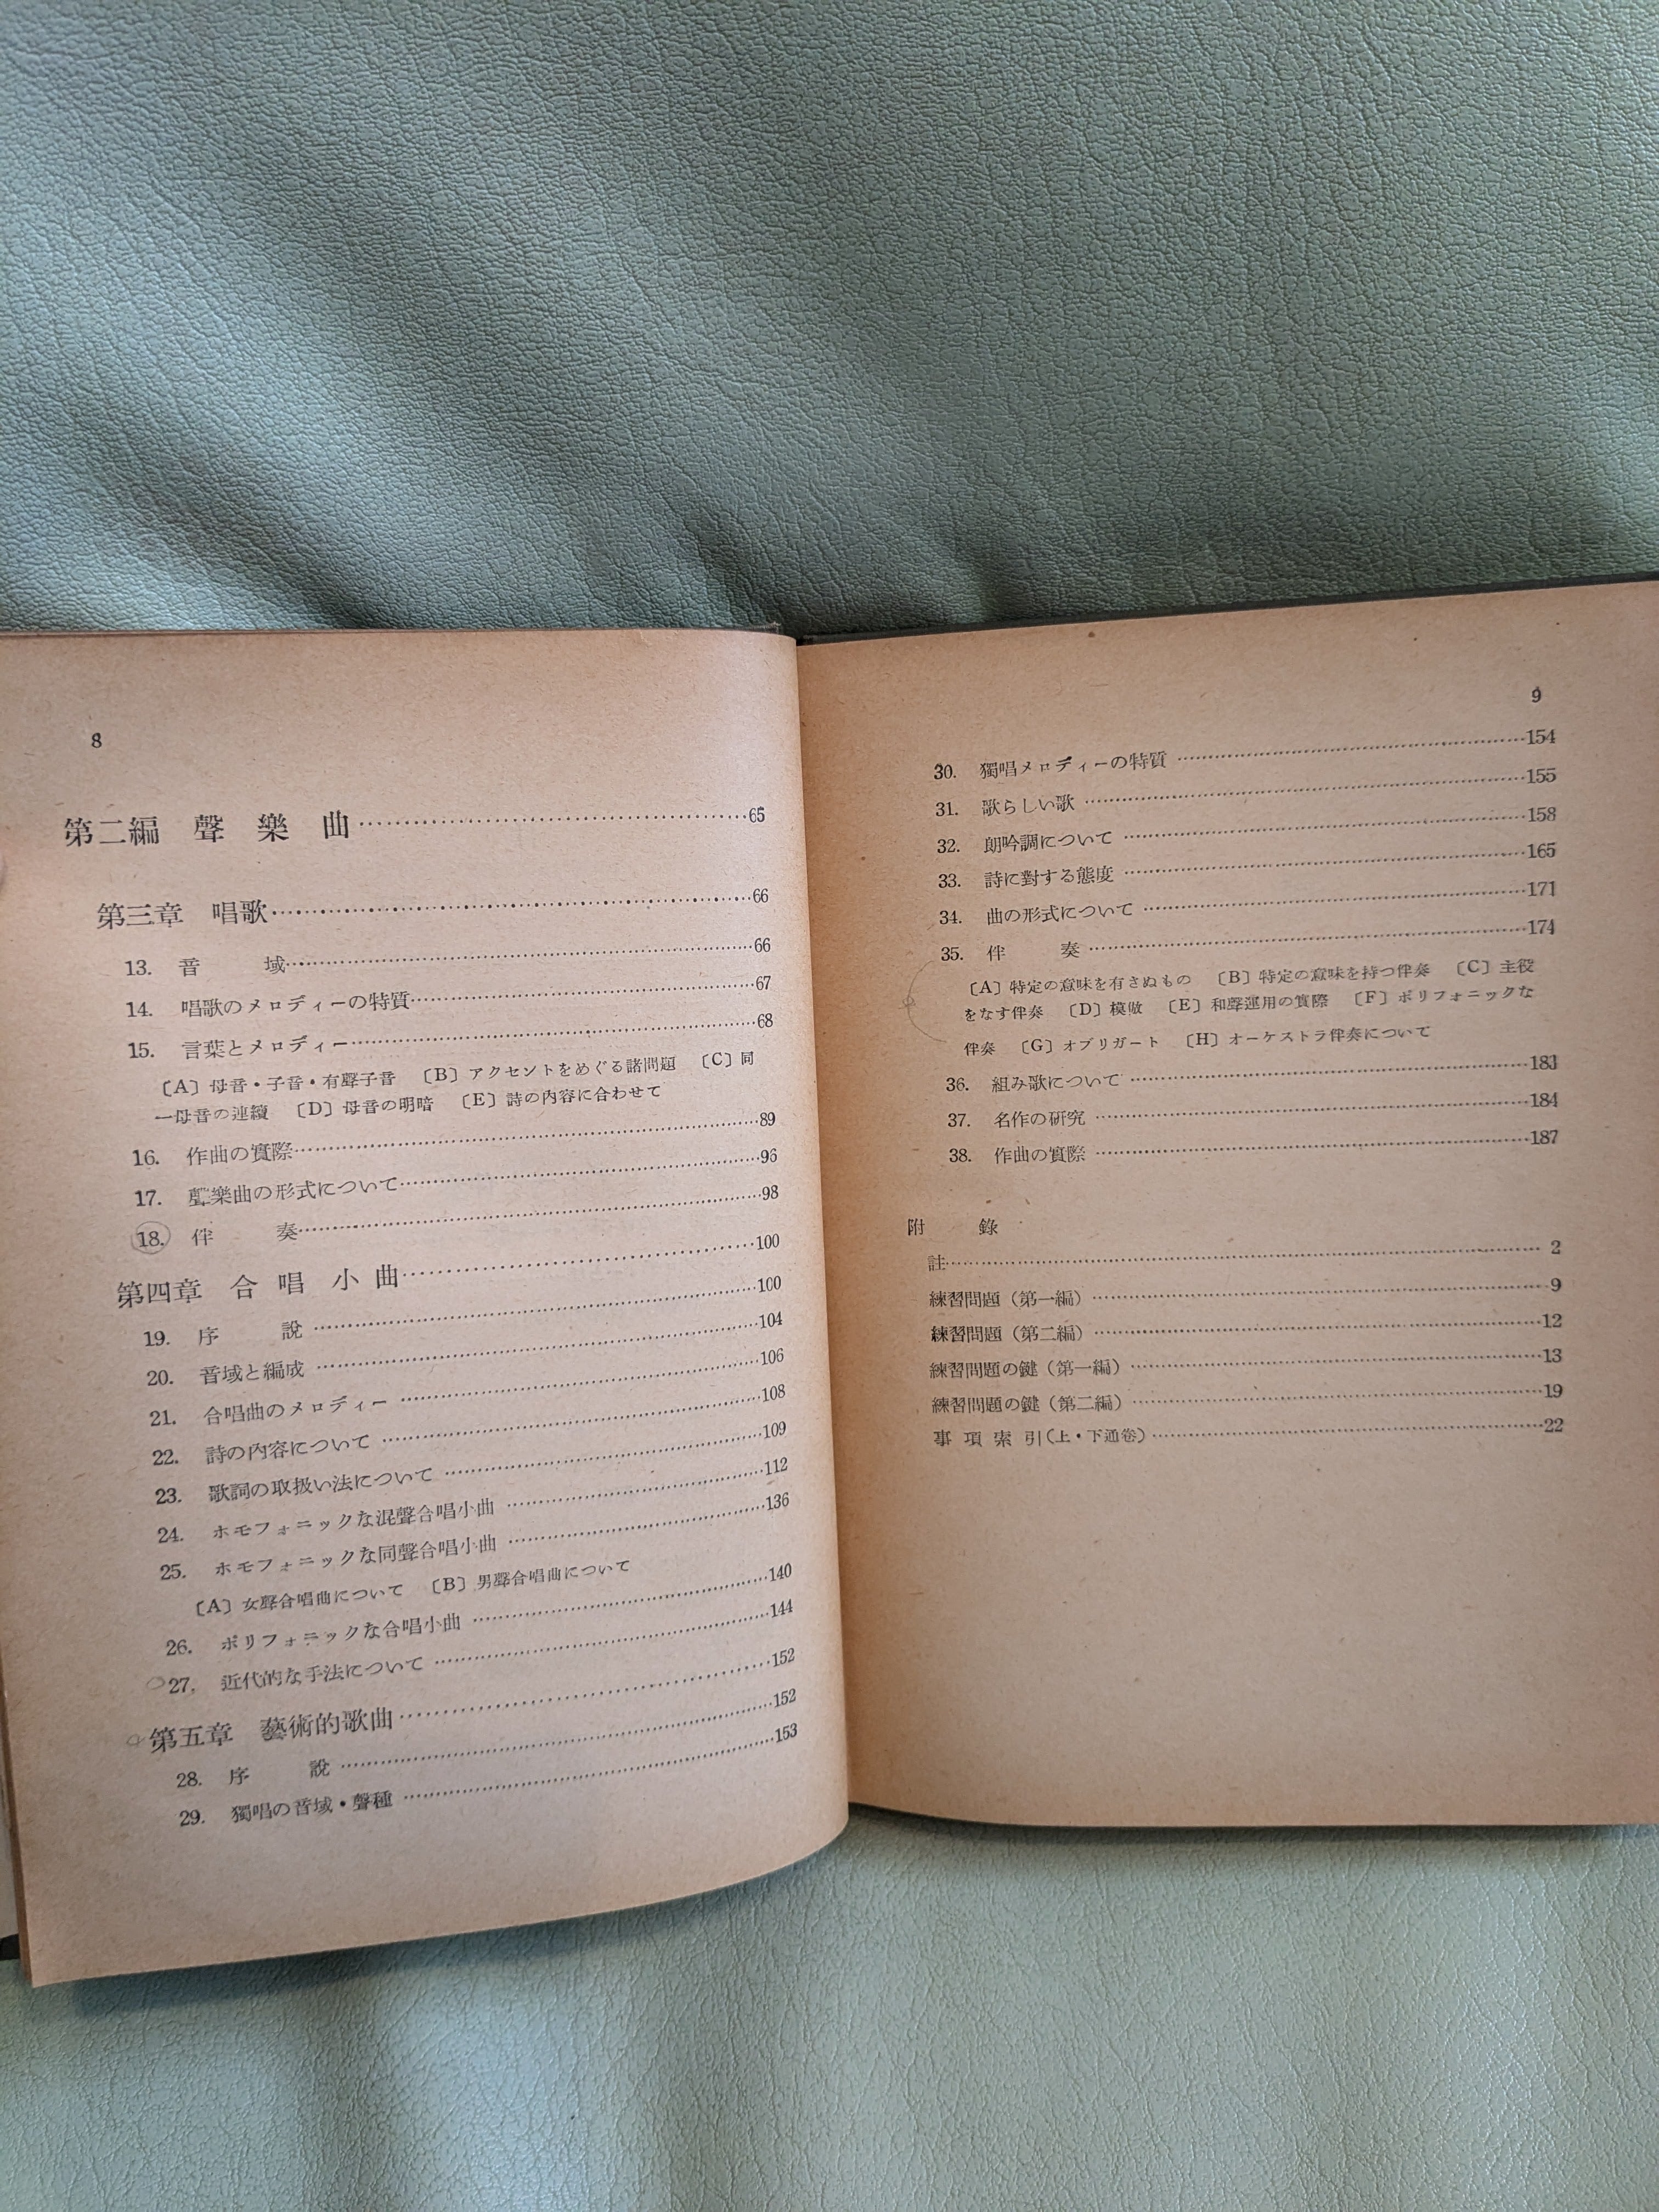 8
第二編　聲　樂　曲……65
第三章　唱歌……66
13.　音　　域……66
14.　唱歌のメロディーの特質……67
15.　言葉とメロディー……68
〔A〕母音・子音・有聲子音　〔B〕アクセントをめぐる諸問題　〔C〕同
一母音の連續　〔D〕母音の明暗　〔E〕詩の内容に合わせて
16.　作曲の實際……89
17.　聲樂曲の形式について……96
18.　伴　　奏……98
第四章　合　唱　小　曲……100
19.　序　　說……100
20.　音域と編成……104
21.　合唱曲のメロディー……106
22.　詩の内容について……108
23.　歌詞の取扱い法について……109
24.　ホモフォニックな混聲合唱小曲……112
25.　ホモフォニックな同聲合唱小曲……136
〔A〕女聲合唱曲について　〔B〕男聲合唱曲について
26.　ポリフォニックな合唱小曲……140
27.　近代的な手法について……144
第五章　藝術的歌曲……152
28.　序　　說……152
29.　獨唱の音域・聲種……153
9
30.　獨唱メロディーの特質……154
31.　歌らしい歌……155
32.　朗吟調について……158
33.　詩に對する態度……165
34.　曲の形式について……171
35.　伴　　奏……174
〔A〕特定の意味を有さぬもの　〔B〕特定の意味を持つ伴奏　〔C〕主役
をなす伴奏　〔D〕模倣　〔E〕和聲運用の實際　〔F〕ポリフォニックな
伴奏　〔G〕オブリガート　〔H〕オーケストラ伴奏について
36.　組み歌について……183
37.　名作の研究……184
38.　作曲の實際……187
附　　錄
註……2
練習問題（第一編）……9
練習問題（第二編）……12
練習問題の鍵（第一編）……13
練習問題の鍵（第二編）……19
事　項　索　引（上・下通卷）……22